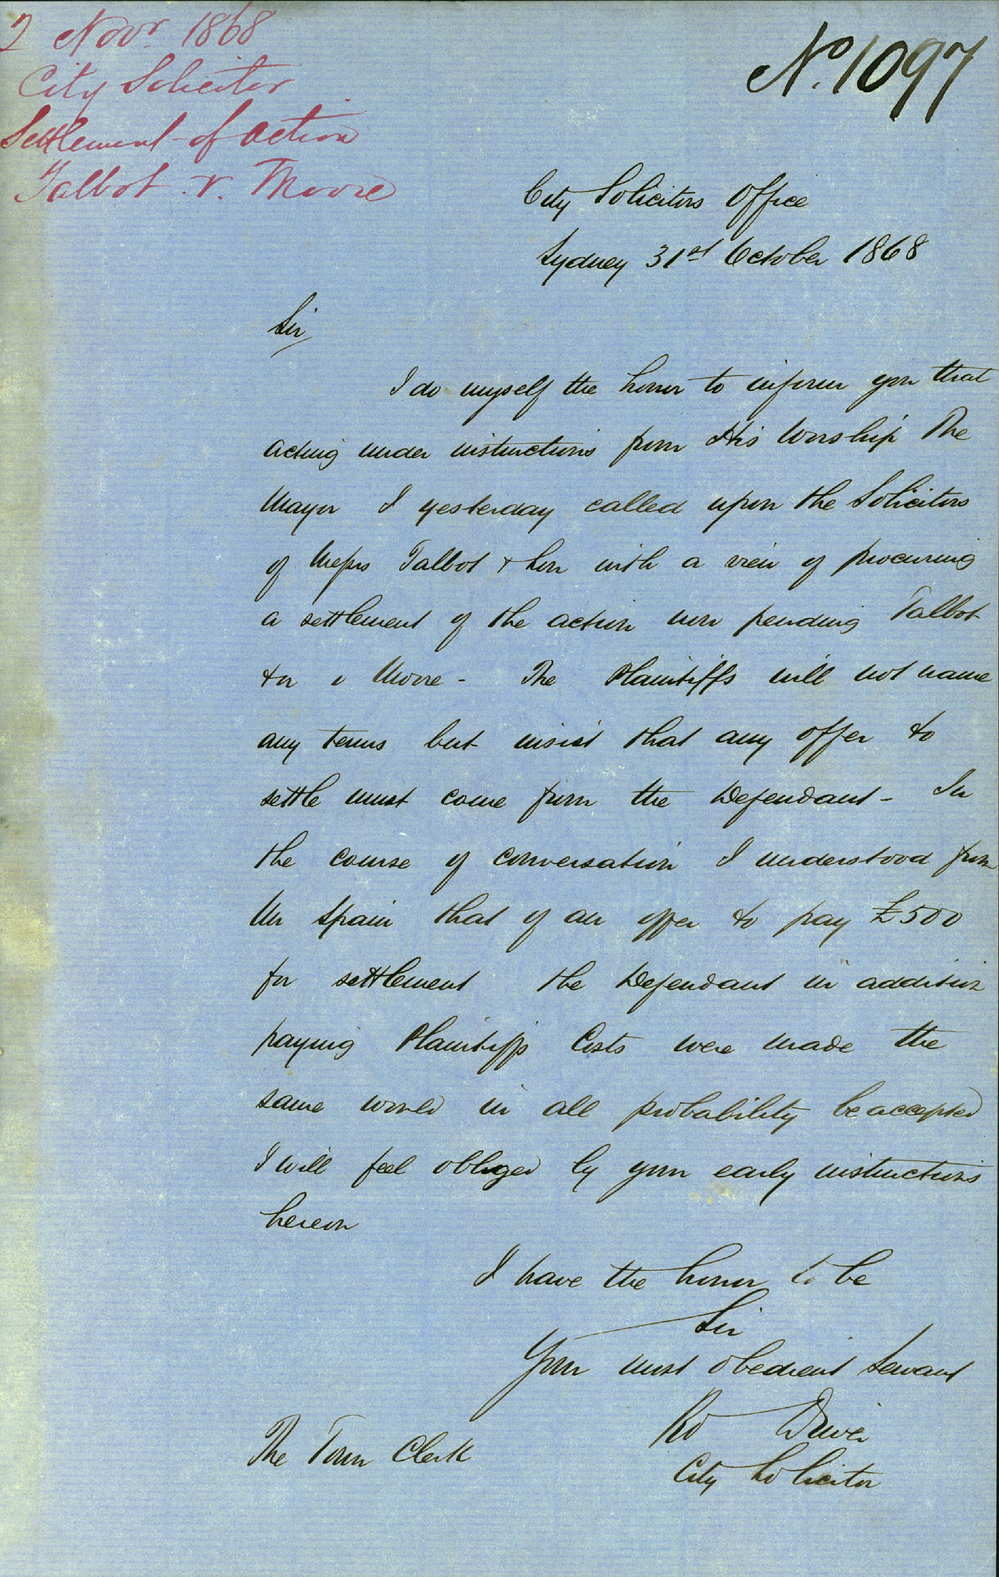 2 Novr 1868
City Solicitor
Settlement of Action
Talbot v. Moore
No. 1097
City Solicitors Office
Sydney 31st October 1868
Sir
I do myself the honor to inform you that
acting under instructions from His Worship The
Mayor I yesterday called upon the Solicitors
of Messrs Talbot & Son with a view of procuring
a settlement of the action now pending Talbot
& or v Moore - The Plaintiffs will not name
any terms but insist that any offer to
settle must come from the Defendant - In
the course of conversation I understood from
Mr Spain that if an offer to pay £500
for settlement the Defendant in addition
paying Plaintiffs Costs were made the
same would in all probability be accepted
I will feel obliged by your early instructions
hereon
I have the honor to be
Sir
Your most obedient Servant
Rd Driver
City Solicitor
The Town Clerk